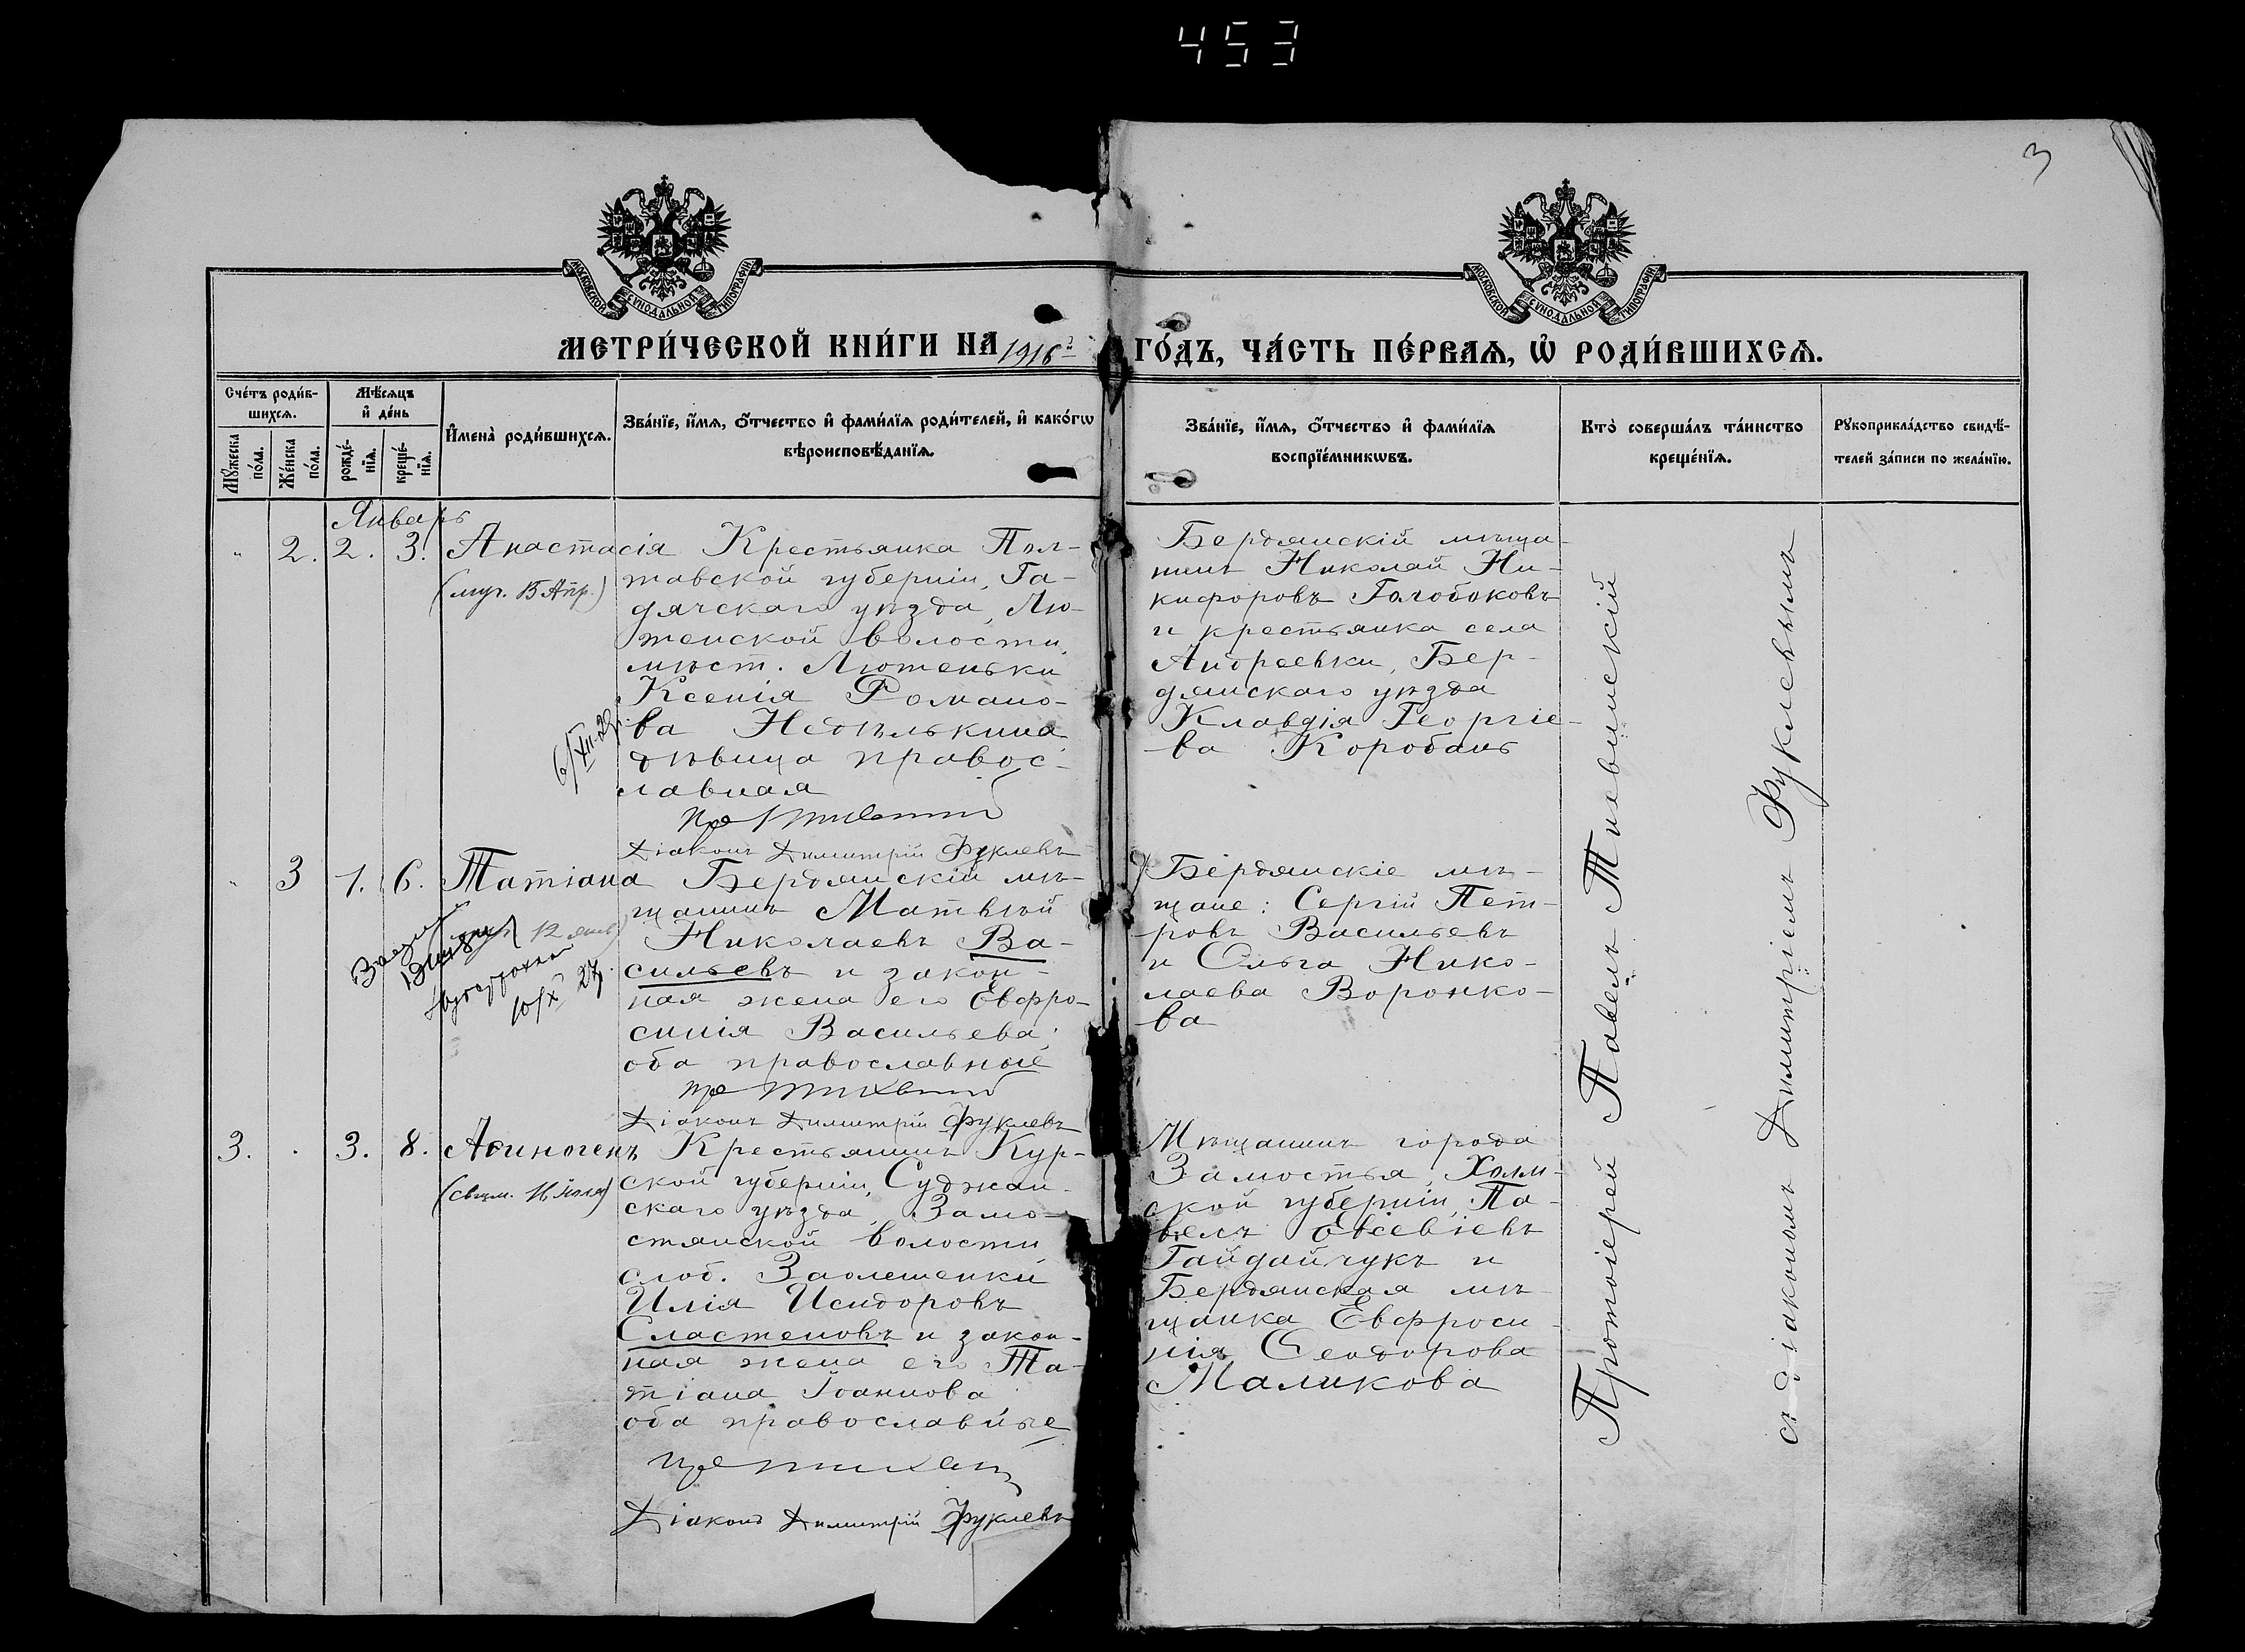 453
3
МОСКОВСКОЙ СѴНОДАЛЬНОЙ ТИПОГРАФІИ
МОСКОВСКОЙ СѴНОДАЛЬНОЙ ТИПОГРАФІИ
МЕТРИ́ЧЕСКОЙ КНИ́ГИ НА 1916 ГО́ДЪ, ЧА́СТЬ ПЕ́РВАѦ, Ѡ҆ РОДИ́ВШИХСѦ.
Сче́тъ роди́в-
шихсѧ.
Мꙋжеска по́ла.
Же́нска по́ла.
Мѣ́сѧцъ
и҆ де́нь
рожде́-
нїѧ.
креще́-
нїѧ.
И҆мена̀ роди́вшихсѧ.
Зва́нїе, и҆́мѧ, ѻ҆́тчество и҆ фами́лїѧ роди́телей, и҆ како́гѡ
вѣроисповѣ́данїѧ.
Зва́нїе, и҆́мѧ, ѻ҆́тчество и҆ фами́лїѧ
воспрїе́мникѡвъ.
Кто̀ соверша́лъ та́инство
креще́нїѧ.
Рꙋкоприкла́дство свидѣ́-
телей за́писи по жела́нїю.
Январь
" 2. 2. 3. Анастасія
(муч. 15 Апр.)
Крестьянка Пол-
тавской губерніи, Га-
дячскаго уѣзда, Лю-
тенской волости,
мѣст. Лютеньки
Ксенія Романо-
ва Недѣлькина,
дѣвица правос-
лавная
6/XII-29
Діаконъ Димитрій Фуклевъ
Бердянскій мѣща-
нинъ Николай Ни-
кифоровъ Голобоковъ
и крестьянка села
Андреевки, Бер-
дянскаго уѣзда
Клавдія Георгіе-
ва Коробань
" 3 1. 6. Татіана
12 янв)
10/X 27
Бердянскій мѣ-
щанинъ Матвѣй
Николаевъ Ва-
сильевъ и закон-
ная жена его Евфро-
синія Васильева;
оба православные
Діаконъ Димитрій Фуклевъ
Бердянскіе мѣ-
щане: Сергій Пет-
ровъ Васильевъ
и Ольга Нико-
лаева Воронко-
ва
3. . 3. 8. Аѳиногенъ
(свщм. 16 Іюля)
Крестьянинъ Кур-
ской губерніи, Суджан-
скаго уѣзда, Замо-
стянской волости
слоб. Заолешенки
Илія Исидоровъ
Сластеновъ и закон-
ная жена его Та-
тіана Іоаннова
оба православные
Діаконъ Димитрій Фуклевъ
Мѣщанинъ города
Замостья, Холм-
ской губерніи, Па-
велъ Евсевіевъ
Гайдайчукъ и
Бердянская мѣ-
щанка Евфроси-
нія Ѳеодорова
Маликова
Протоіерей Павелъ Тихвинскій
съ діакономъ Димитріемъ Фуклевымъ